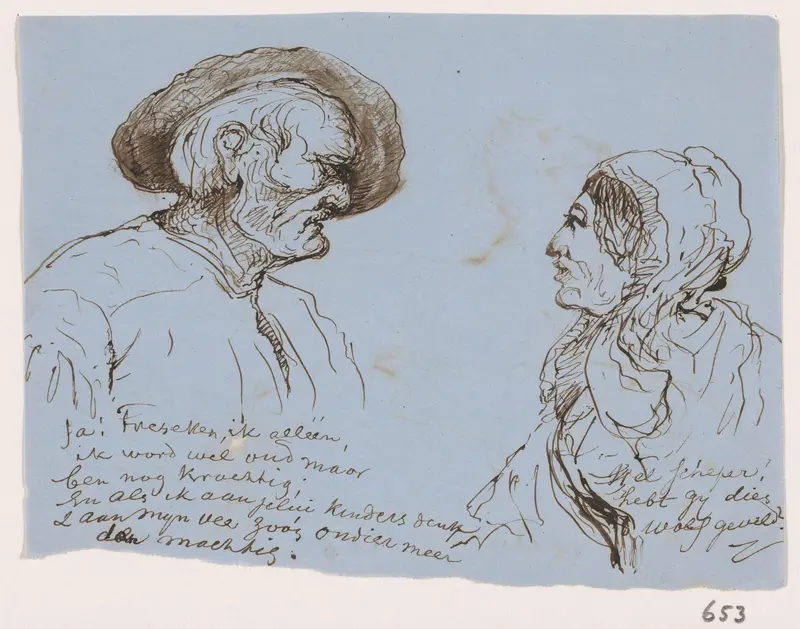 Ja! Freseken, ik alleen,
ik word wel oud maar
ben nog krachtig!
En als ik aan jelui kinders denk
& aan mijn vee zoo's ondier meer
dan machtig.
Wel scheper!
hebt gy dies
wolf geveld?
653